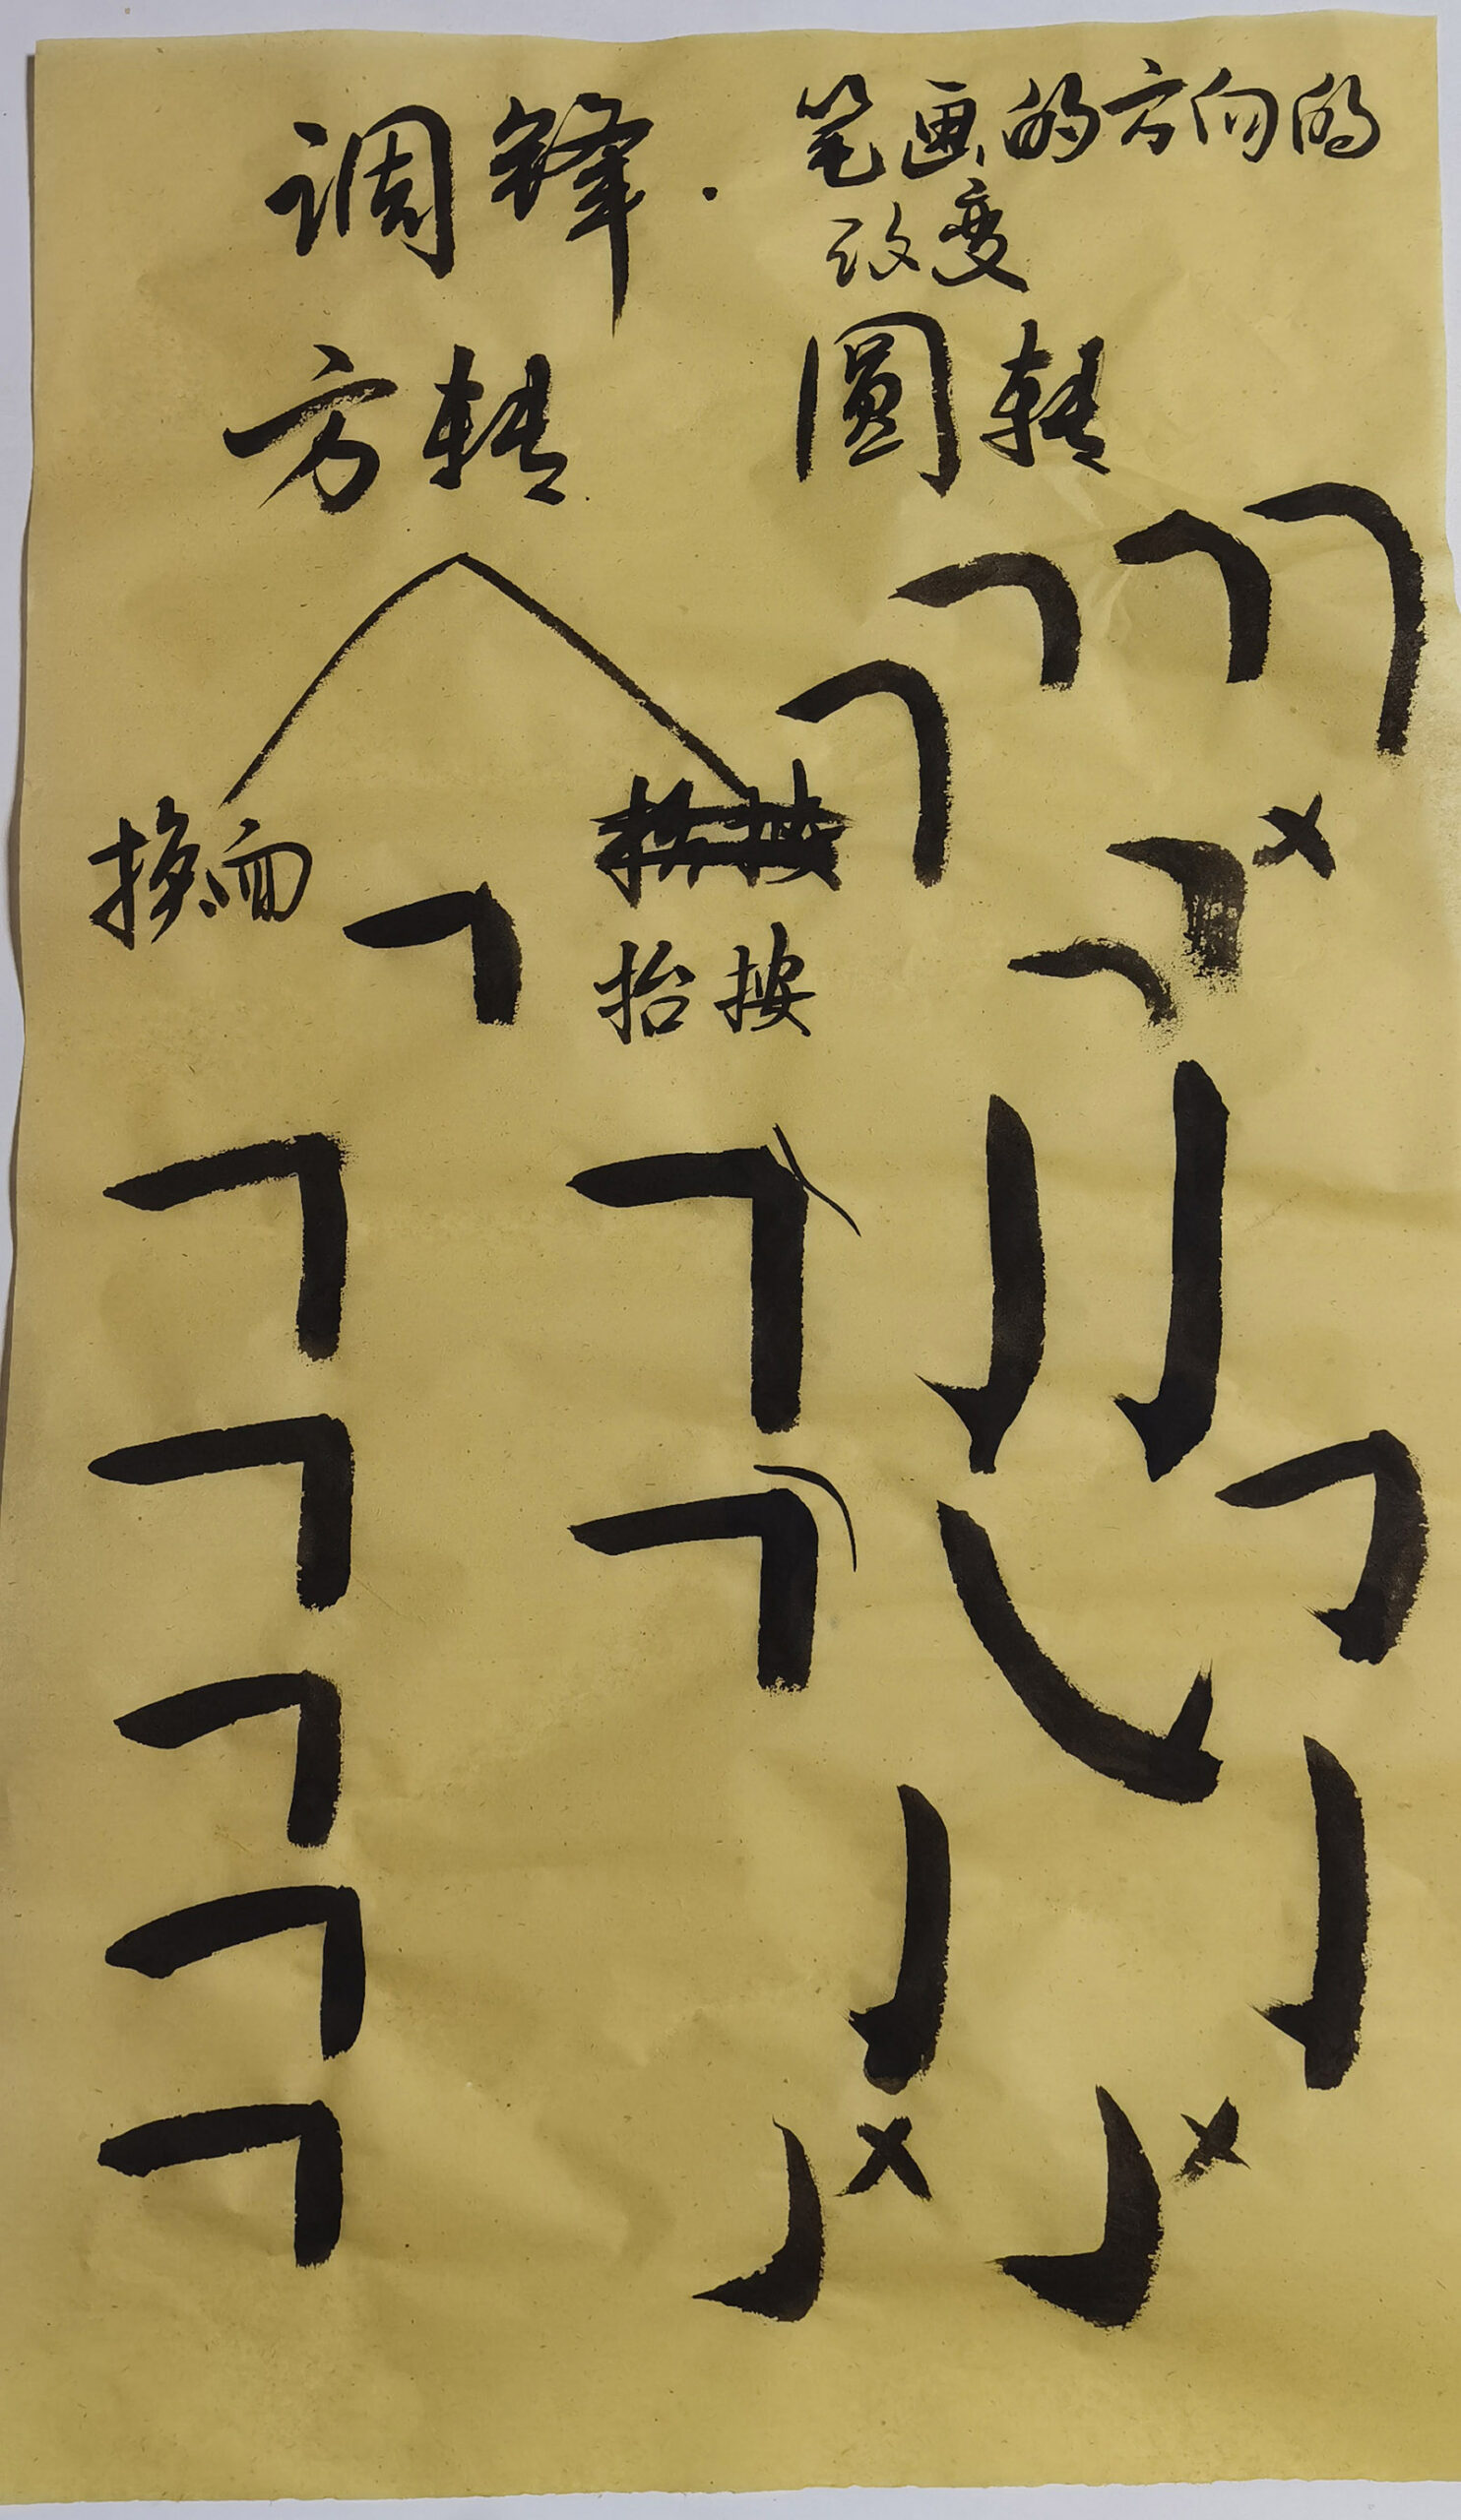 调锋. 笔画的方向的
改变
方转 圆转
换面
抬按